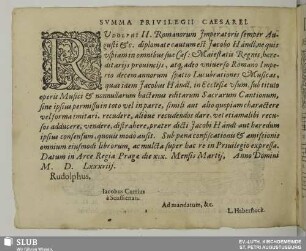 SVMMA PRIVILEGII CAESAREI.
RVdolphi II. Romanorum Imperatoris semper Augusti &c. diplomate cautum est Iacobo Händl, ne quis
vspiam in omnibus suæ Cæs: Maiestatis Regnis, hæreditarijs
prouincijs, atq; adeò vniuerso Romano Imperio
decem annorum spatio Lucubrationes Musicas,
quas idem Iacobus Händl, in Ecclesiæ vsum, sub titulo
operis Musici & nunc harum Sacrarum Cantionum,
sine ipsius permissu in toto vel in parte, simili aut alio quopiam charactere
vel forma imitari, recudere, aliàue recudendis dare, vel etiam alibi recusos
adducere, vendere, distrahere, præter dicti Iacobi Händl aut hæredum
ipsius consensum, quouis modo ausit. Sub pœna confiscationis & amissionis
omnium eiusmodi librorum, ac mulcta super hac re in Priuilegio expressa.
Datum in Arce Regia Pragæ die XIX. Mensis Martij, Anno Domini
M. D. LXXXVIII.
Rudolphus.
Iacobus Curtius
à Senfftenau.
Ad mandatum, &c.
SLUB
Wir führen Wissen.
EV.-LUTH. KIRCHGEMEINDE
ST. PETRI AUGUSTUSBURG